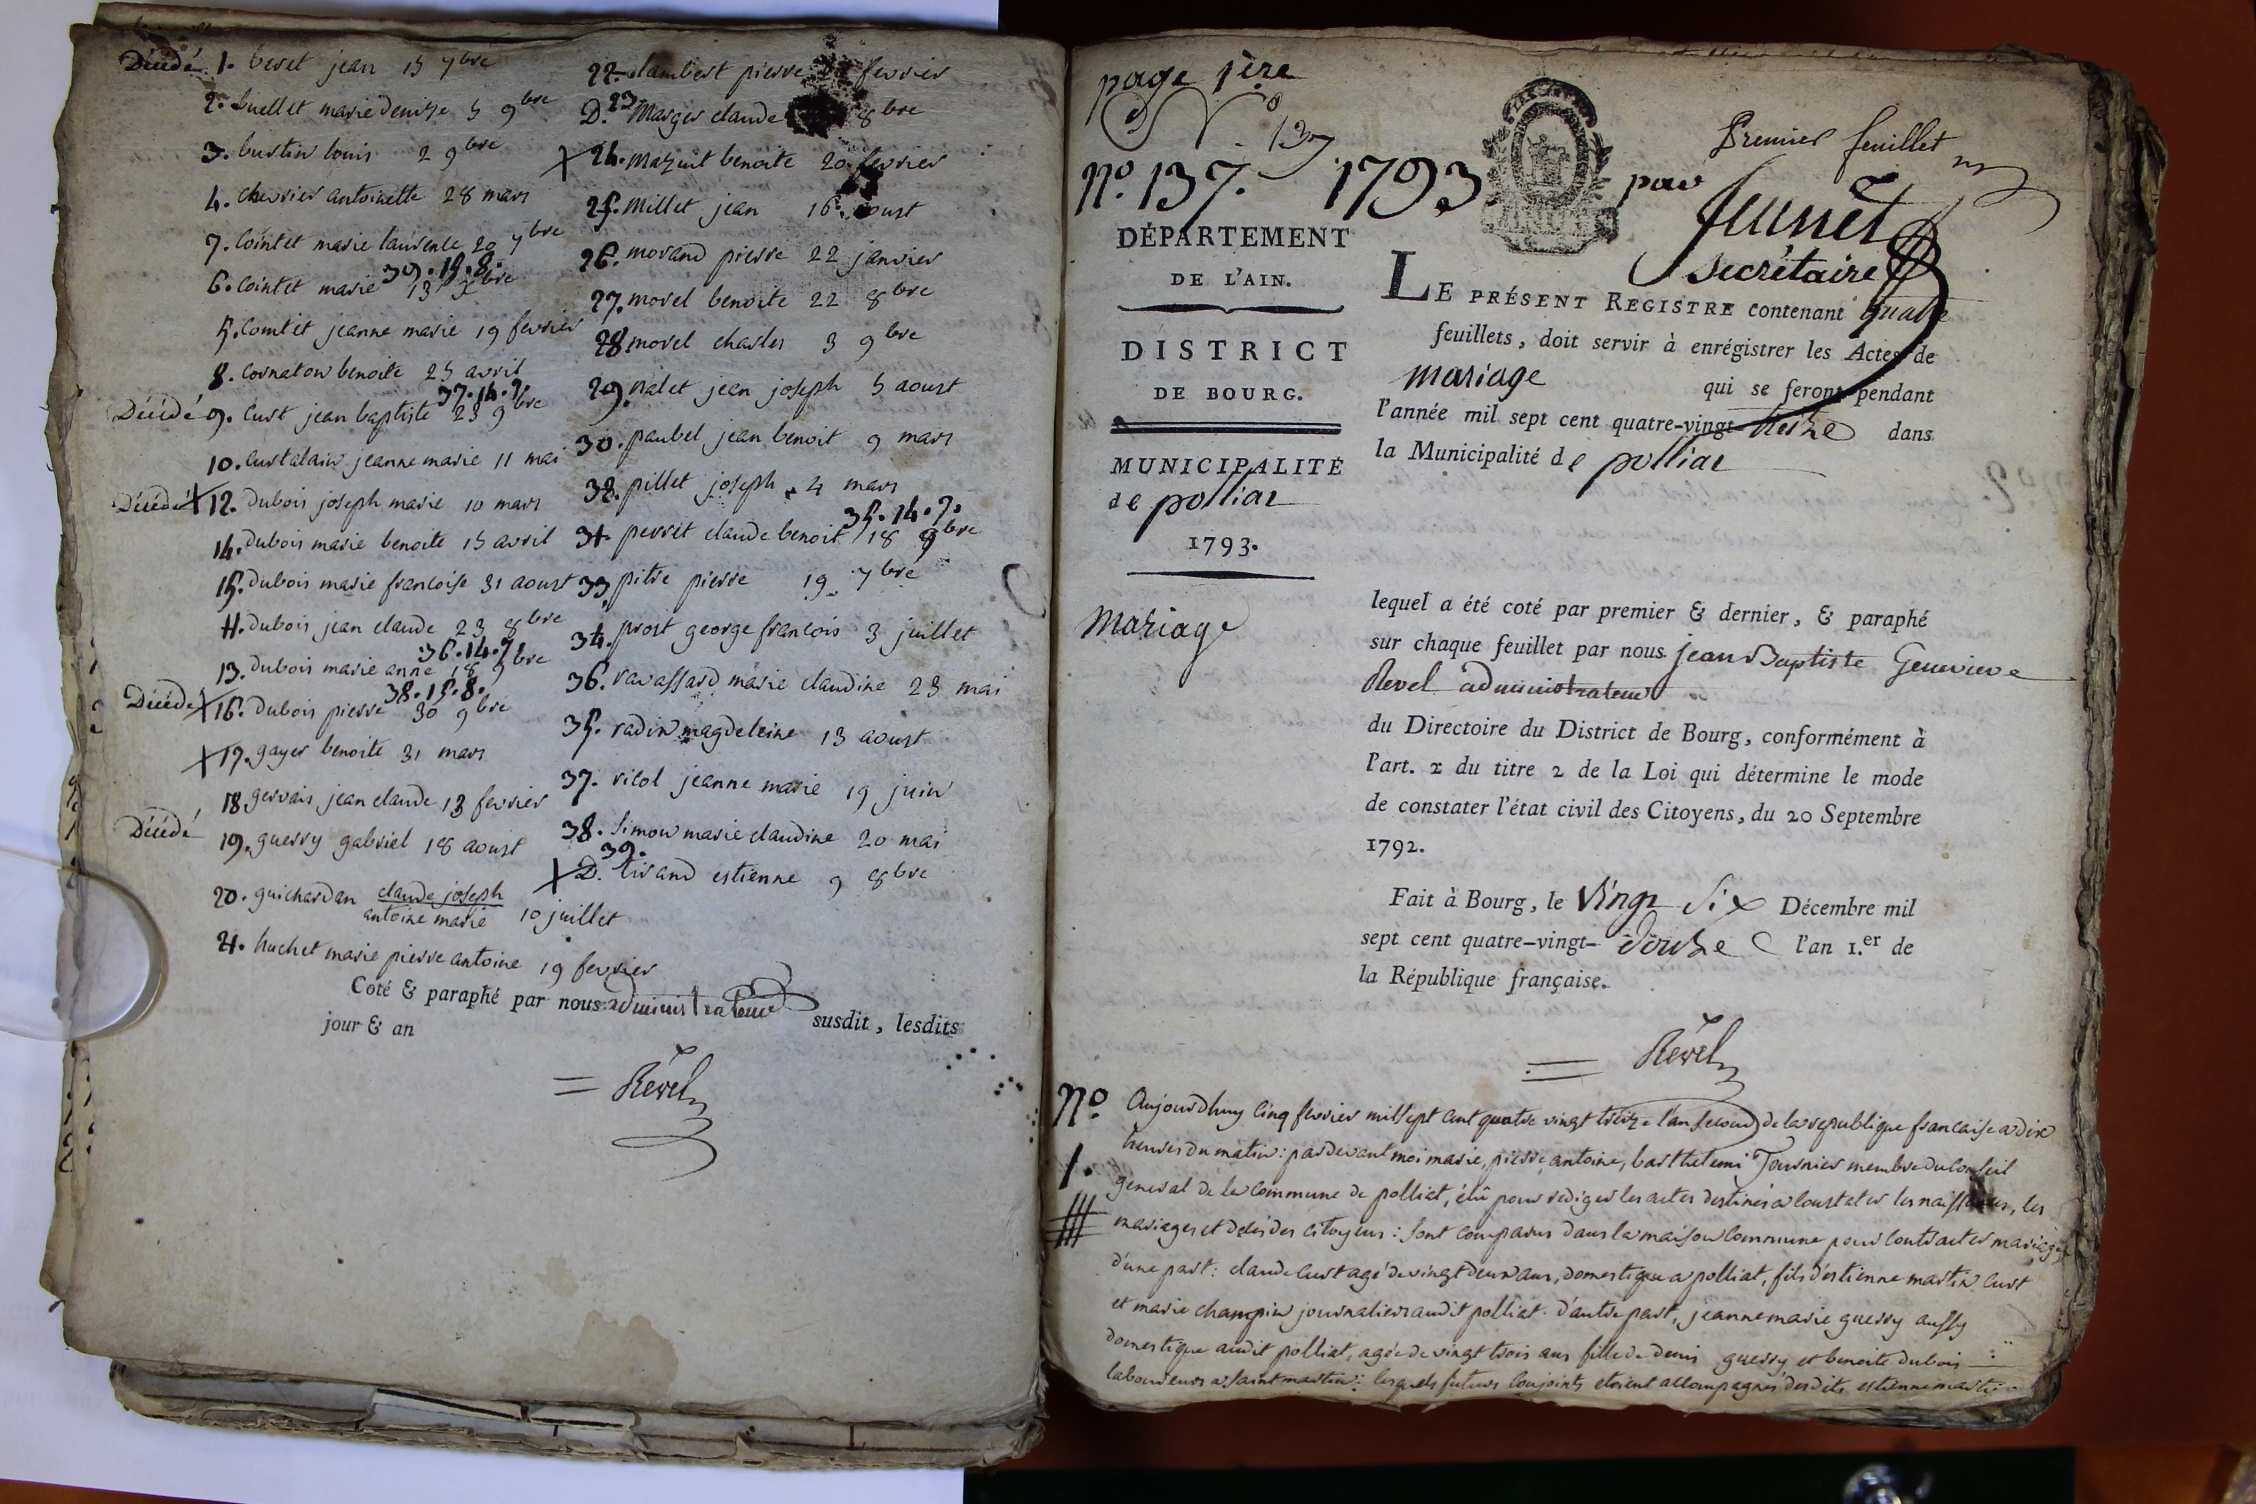 Décédé 1. beret jean 15 7bre
2. buellet marie denise 5 9bre
3. burtin louis 2 9bre
4. chevrier antoinette 28 mars
7. Cointet marie laurence 20 7bre
6. Cointet marie 13 39.15.8.
5. Comtet jeanne marie 19 fevrier
8. Cornaton benoite 25 avril
37.14.7.
Décédé 9. Curt jean baptiste 23 9bre
10. Curtalain jeanne marie 11 mai
Décédé X 12. Dubois joseph marie 10 mars
14. Dubois marie benoite 15 avril
15. Dubois marie francoise 31 aoust
11. Dubois jean claude 23 8bre
36.14.7.
13. Dubois marie anne 18 9bre
38.15.8.
Décédé X 16. Dubois pierre 30 9bre
X 17. gayer benoite 31 mars
18 gervais jean claude 13 fevrier
Décédé 19. guerry gabriel 18 aoust
20. guichardan claude joseph
antoine marie 10 juillet
21. huchet marie pierre antoine 19 fevrier
22. lambert pierre fevrier
D. 23 Marger claude 8bre
X 24. Mazuit benoite 20 fevrier
25. Millet jean 16 aoust
26. morand pierre 22 janvier
27. morel benoite 22 8bre
28. morel charles 3 9bre
29. natet jean joseph 5 aoust
30. paubel jean benoit 9 mars
38. pillet joseph 4 mars
35.14.7.
31. perret claude benoit 18 9bre
33 pitre pierre 19 7bre
34. prost george francois 3 juillet
36. ravassard marie claudine 23 mai
35. radin magdeleine 13 aoust
37. ricol jeanne marie 19 juin
38. Simon marie claudine 20 mai
39.
X D. tirand estienne 9 8bre
Coté & paraphé par nous administrateur susdit, lesdits
jour & an
Revel
page 1ère
No 137
No. 137. 1793.
Premier feuillet
par
Junet
Secrétaire
DÉPARTEMENT
DE L'AIN.
DISTRICT
DE BOURG.
MUNICIPALITÉ
de polliat
1793.
Mariage
LE PRÉSENT REGISTRE contenant quatre
feuillets, doit servir à enrégistrer les Actes de
mariage qui se feront pendant
l'année mil sept cent quatre-vingt-treize dans
la Municipalité de polliat
lequel a été coté par premier & dernier, & paraphé
sur chaque feuillet par nous jean Baptiste Genevieve
Revel administrateur
du Directoire du District de Bourg, conformément à
l'art. 2 du titre 2 de la Loi qui détermine le mode
de constater l'état civil des Citoyens, du 20 Septembre
1792.
Fait à Bourg, le Vingt Six Décembre mil
sept cent quatre-vingt-Douze l'an 1.er de
la République française.
Revel
No
1.
Aujourdhuy Cinq fevrier mil sept cent quatre vingt treize l'an second de la republique francaise a dix
heures du matin: pardevant moi marie, pierre, antoine, barthelemi Tournier membre du Conseil
general de la Commune de polliat, élû pour rediger les actes destinés a Constater les naissances, les
mariages et décés des citoyens: Sont comparus dans la maison Commune pour Contracter mariage
d'une part: claude Curt agé de vingt deux ans, domestique a polliat, fils d'estienne martin Curt
et marie champin journaliers audit polliat. d'autre part, jeanne marie guerry aussy
domestique audit polliat, agée de vingt trois ans fille de denis guerry et benoite dubois
laboureurs a Saint martin: lesquels futurs Conjoints etoient accompagnés desdits estienne martin